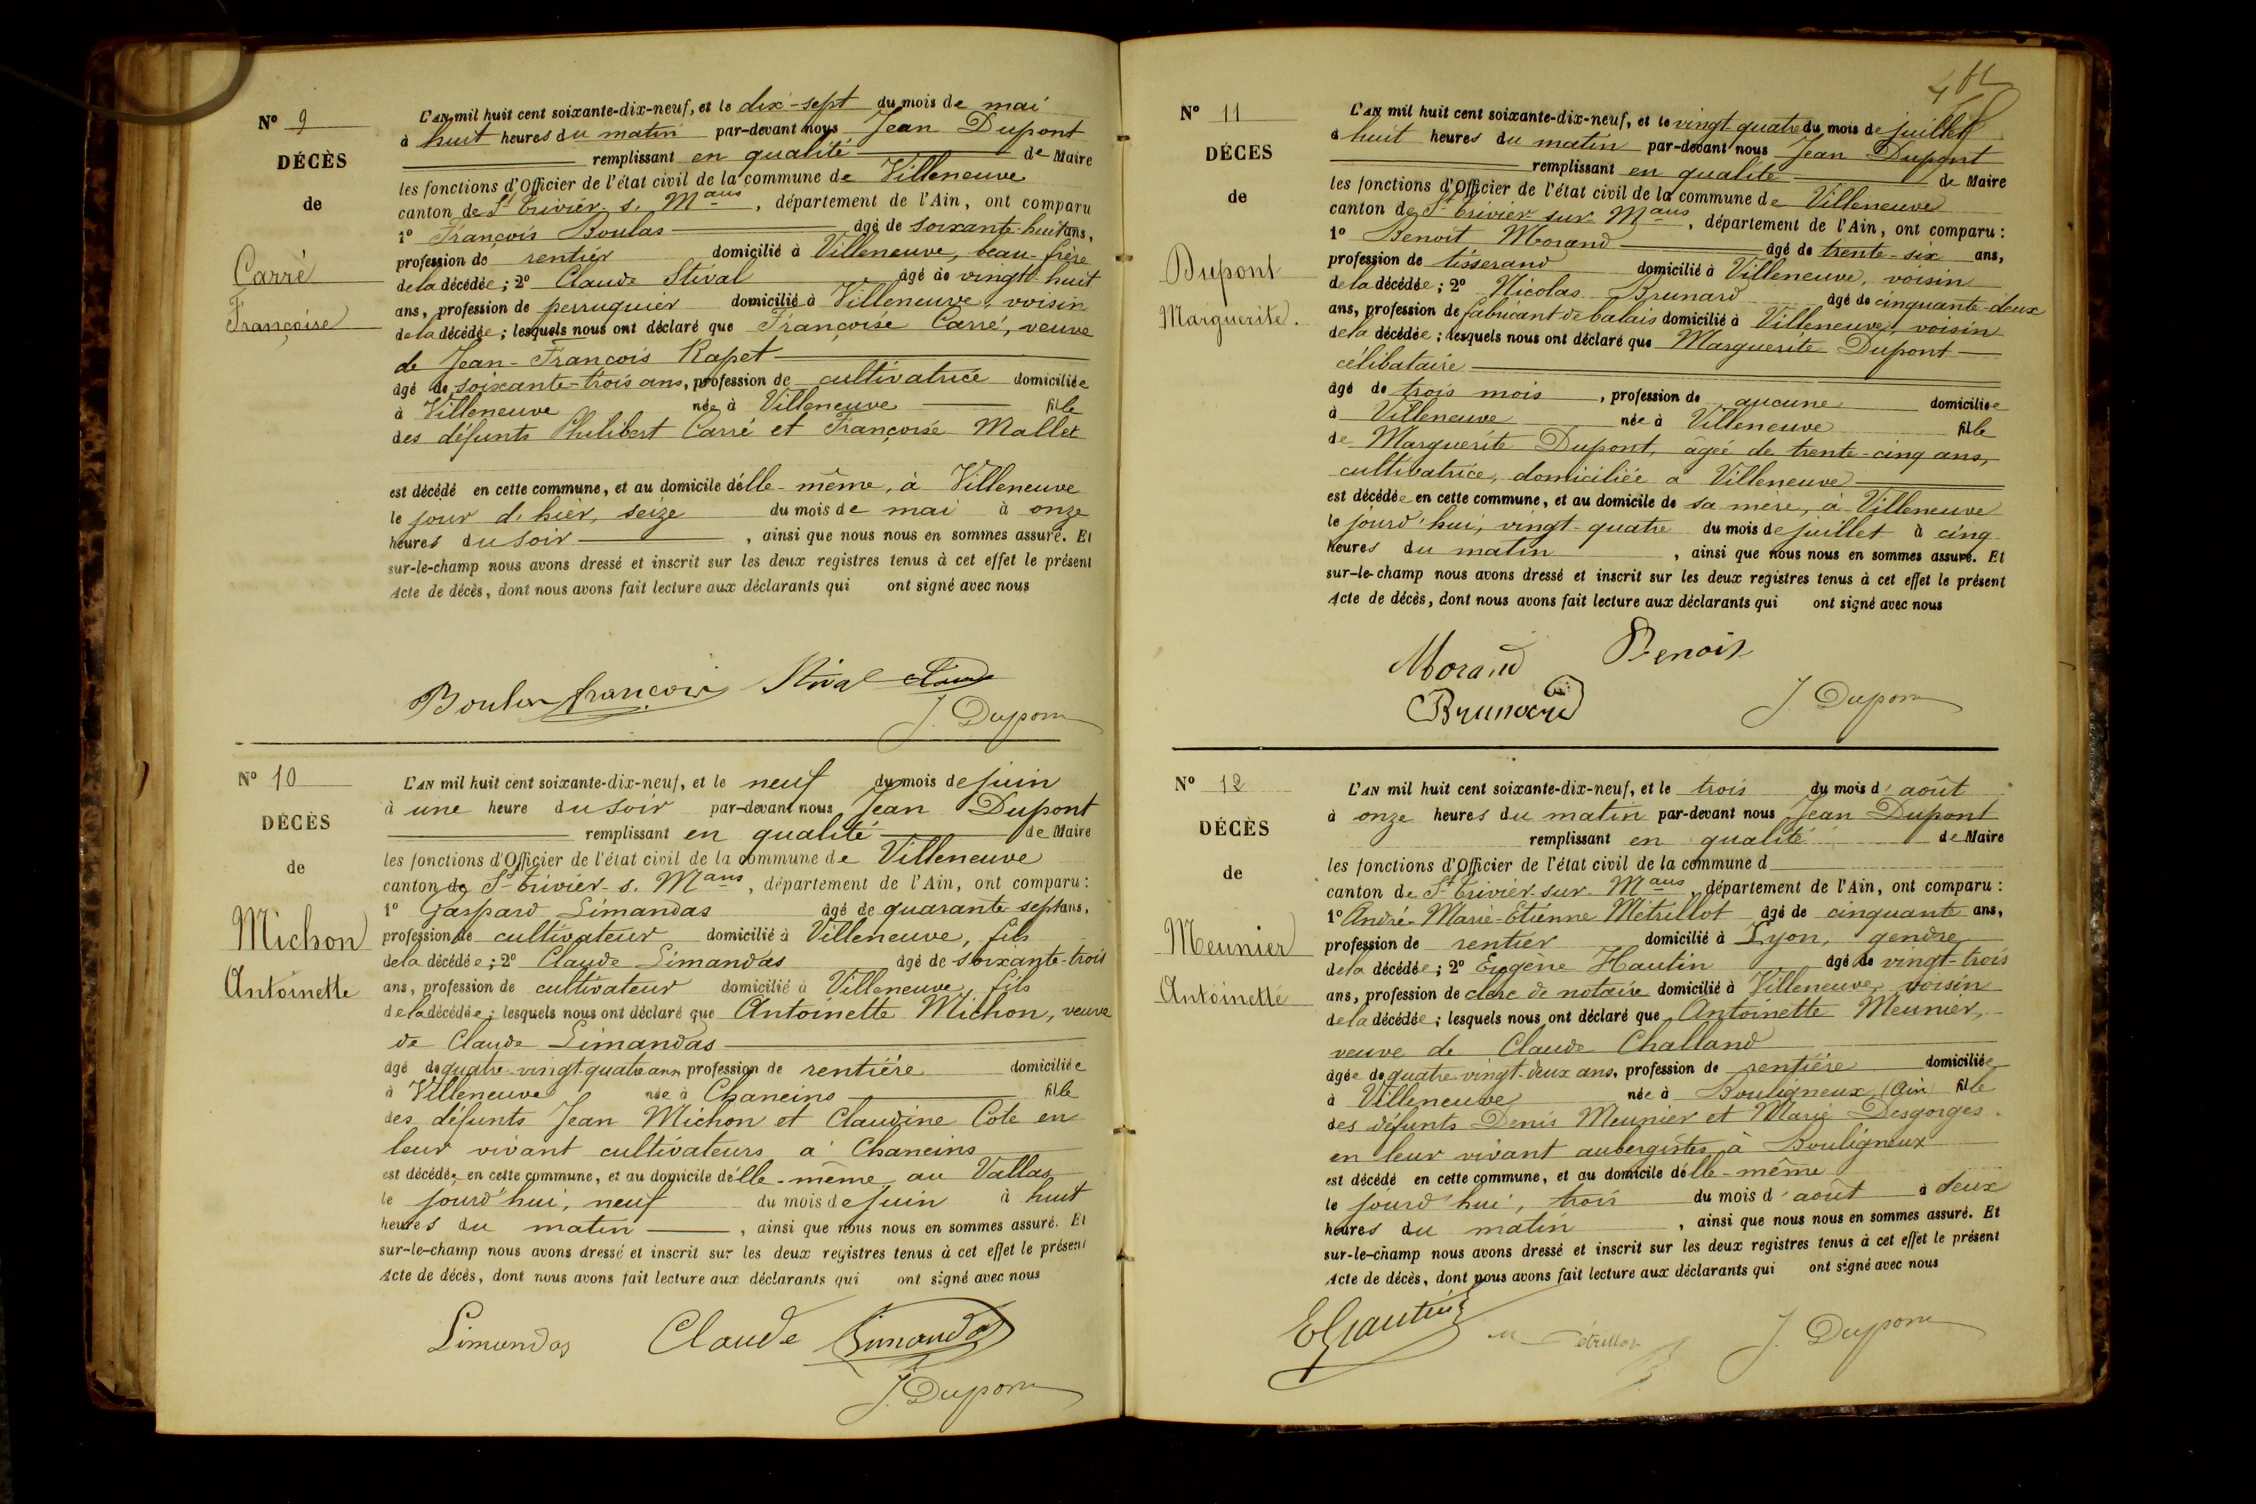 N° 9
DÉCÈS
de
Carré
Françoise
L'AN mil huit cent soixante-dix-neuf, et le dix-sept du mois de mai
à huit heures du matin par-devant nous Jean Dupont
remplissant en qualité de Maire
les fonctions d'Officier de l'état civil de la commune de Villeneuve
canton de St trivier s. Mans, département de l'Ain, ont comparu
1° François Boulas âgé de soixante-huit ans,
profession de rentier domicilié à Villeneuve, beau-frère
de la décédée; 2° Claude Stival âgé de vingt-huit
ans, profession de perruquier domicilié à Villeneuve, voisin
de la décédée; lesquels nous ont déclaré que Françoise Carré, veuve
de Jean-François Rapet
âgé de soixante-trois ans, profession de cultivatrice domiciliée
à Villeneuve née à Villeneuve fille
des défunts Philibert Carré et Françoise Mallet
est décédé en cette commune, et au domicile d'elle-même, à Villeneuve
le jour d'hier, seize du mois de mai à onze
heures du soir, ainsi que nous nous en sommes assuré. Et
sur-le-champ nous avons dressé et inscrit sur les deux registres tenus à cet effet le présent
Acte de décès, dont nous avons fait lecture aux déclarants qui ont signé avec nous
Boulas françois Stival Claude
J. Dupont
N° 10
DÉCÈS
de
Michon
Antoinette
L'AN mil huit cent soixante-dix-neuf, et le neuf du mois de juin
à une heure du soir par-devant nous Jean Dupont
remplissant en qualité de Maire
les fonctions d'Officier de l'état civil de la commune de Villeneuve
canton de St trivier s. Mans, département de l'Ain, ont comparu:
1° Gaspard Limandas âgé de quarante sept ans,
profession de cultivateur domicilié à Villeneuve, fils
de la décédée; 2° Claude Limandas âgé de soixante-trois
ans, profession de cultivateur domicilié à Villeneuve, fils
de la décédée; lesquels nous ont déclaré que Antoinette Michon, veuve
de Claude Limandas
âgé de quatre-vingt-quatre ans profession de rentière domiciliée
à Villeneuve née à Chaneins fille
des défunts Jean Michon et Claudine Cote en
leur vivant cultivateurs à Chaneins
est décédée en cette commune, et au domicile d'elle-même au Vallas
le jourd'hui, neuf du mois de juin à huit
heures du matin, ainsi que nous nous en sommes assuré. Et
sur-le-champ nous avons dressé et inscrit sur les deux registres tenus à cet effet le présent
Acte de décès, dont nous avons fait lecture aux déclarants qui ont signé avec nous
Limandas Claude Limandas
J. Dupont
N° 11
DÉCÈS
de
Dupont
Marguerite.
L'AN mil huit cent soixante-dix-neuf, et le vingt quatre du mois de juillet
à huit heures du matin par-devant nous Jean Dupont
remplissant en qualité de Maire
les fonctions d'Officier de l'état civil de la commune de Villeneuve
canton de St trivier sur Mans, département de l'Ain, ont comparu:
1° Benoit Morand âgé de trente-six ans,
profession de tisserand domicilié à Villeneuve, voisin
de la décédée; 2° Nicolas Brunard âgé de cinquante-deux
ans, profession de fabricant de balais domicilié à Villeneuve, voisin
de la décédée; lesquels nous ont déclaré que Marguerite Dupont
célibataire
âgé de trois mois, profession de aucune domiciliée
à Villeneuve née à Villeneuve fille
de Marguerite Dupont, âgée de trente-cinq ans,
cultivatrice, domiciliée à Villeneuve
est décédée en cette commune, et au domicile de sa mère, à Villeneuve
le jourd'hui, vingt-quatre du mois de juillet à cinq
heures du matin, ainsi que nous nous en sommes assuré. Et
sur-le-champ nous avons dressé et inscrit sur les deux registres tenus à cet effet le présent
Acte de décès, dont nous avons fait lecture aux déclarants qui ont signé avec nous
Morand Benoit
Brunard J. Dupont
N° 12
DÉCÈS
de
Meunier
Antoinette
L'AN mil huit cent soixante-dix-neuf, et le trois du mois d'août
à onze heures du matin par-devant nous Jean Dupont
remplissant en qualité de Maire
les fonctions d'Officier de l'état civil de la commune d
canton de St trivier sur Mans, département de l'Ain, ont comparu:
1° André-Marie-Etienne Métrillot âgé de cinquante ans,
profession de rentier domicilié à Lyon, gendre
de la décédée; 2° Eugène Hautin âgé de vingt-trois
ans, profession de clerc de notaire domicilié à Villeneuve, voisin
de la décédée; lesquels nous ont déclaré que Antoinette Meunier,
veuve de Claude Challand
âgée de quatre vingt-deux ans, profession de rentière domiciliée
à Villeneuve née à Bouligneux (Ain) fille
des défunts Denis Meunier et Marie Desgorges
en leur vivant aubergistes à Bouligneux
est décédé en cette commune, et au domicile d'elle-même
le jourd'hui, trois du mois d'août à deux
heures du matin, ainsi que nous nous en sommes assuré. Et
sur-le-champ nous avons dressé et inscrit sur les deux registres tenus à cet effet le présent
Acte de décès, dont nous avons fait lecture aux déclarants qui ont signé avec nous
J. Dupont